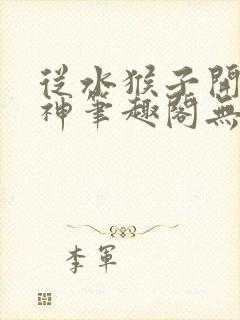 從水猴子開
神筆趣閣無
李軍